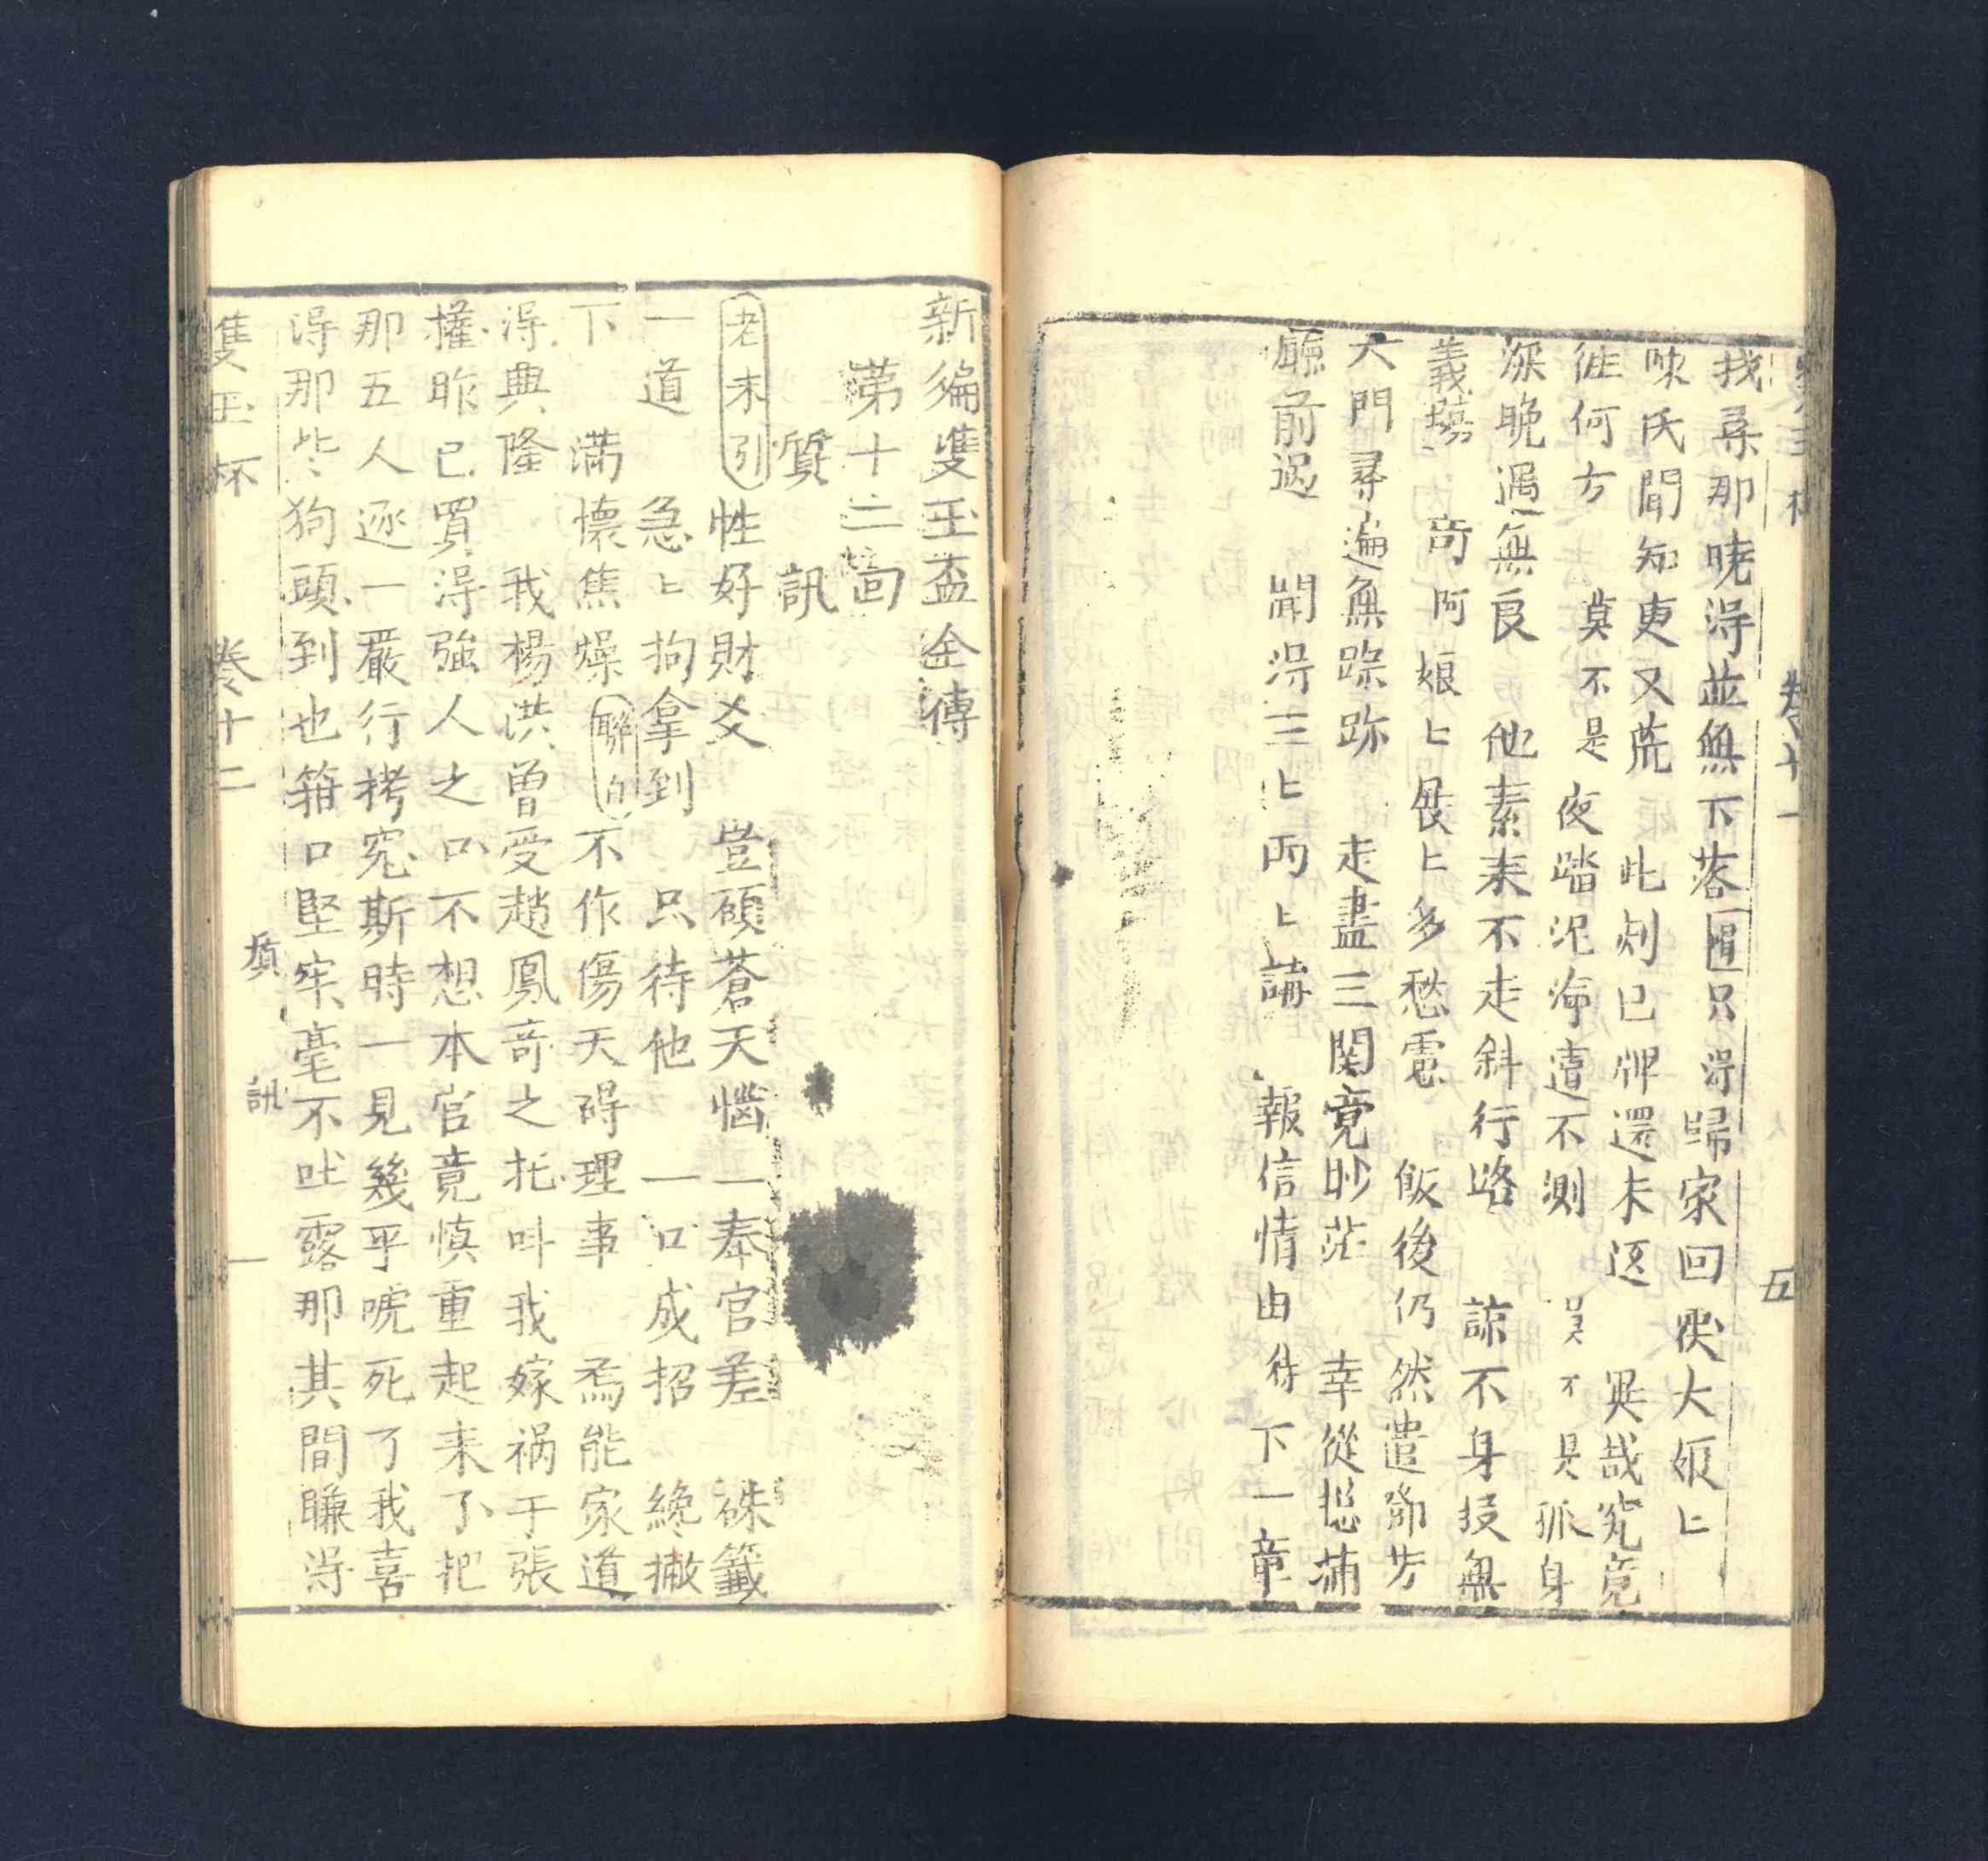 卷十一
五
我尋那曉淂並無下落 只淂歸家回覆大娘〻
陳氏聞知更又慌 此刻巳牌還未返 異哉究竟
徃何方 莫不是夜踏泥濘遭不測 莫不是孤身
深晚遇無良 他素来不走斜行路 諒不身投無
義塲 奇阿 娘〻長〻多愁慮 飯後仍然遣節芳
大門尋遍無踪跡 走盡三関竟眇茫 幸從
廳前過 聞淂三〻両〻講 報信情由待下一章
新編雙玉盃全傳
第十二回
質訊
老末引 性好財爻 豈顧蒼天惱 一奉官差 硃籤
一道 急〻拘拿到 只待他 一口成招 纔撇
下 滿懷焦燥 聯白 不作傷天碍理事 焉能家道
淂興隆 我楊洪曾受趙鳳奇之托呌我嫁禍于張
權昨已買淂强人之口不想本官竟慎重起来了把
那五人逐一嚴行拷究斯時一見幾乎唬死了我喜
淂那些狗頭到也箝口堅牢毫不吐露那其間賺淂
雙玉杯 卷十二 質訊 一